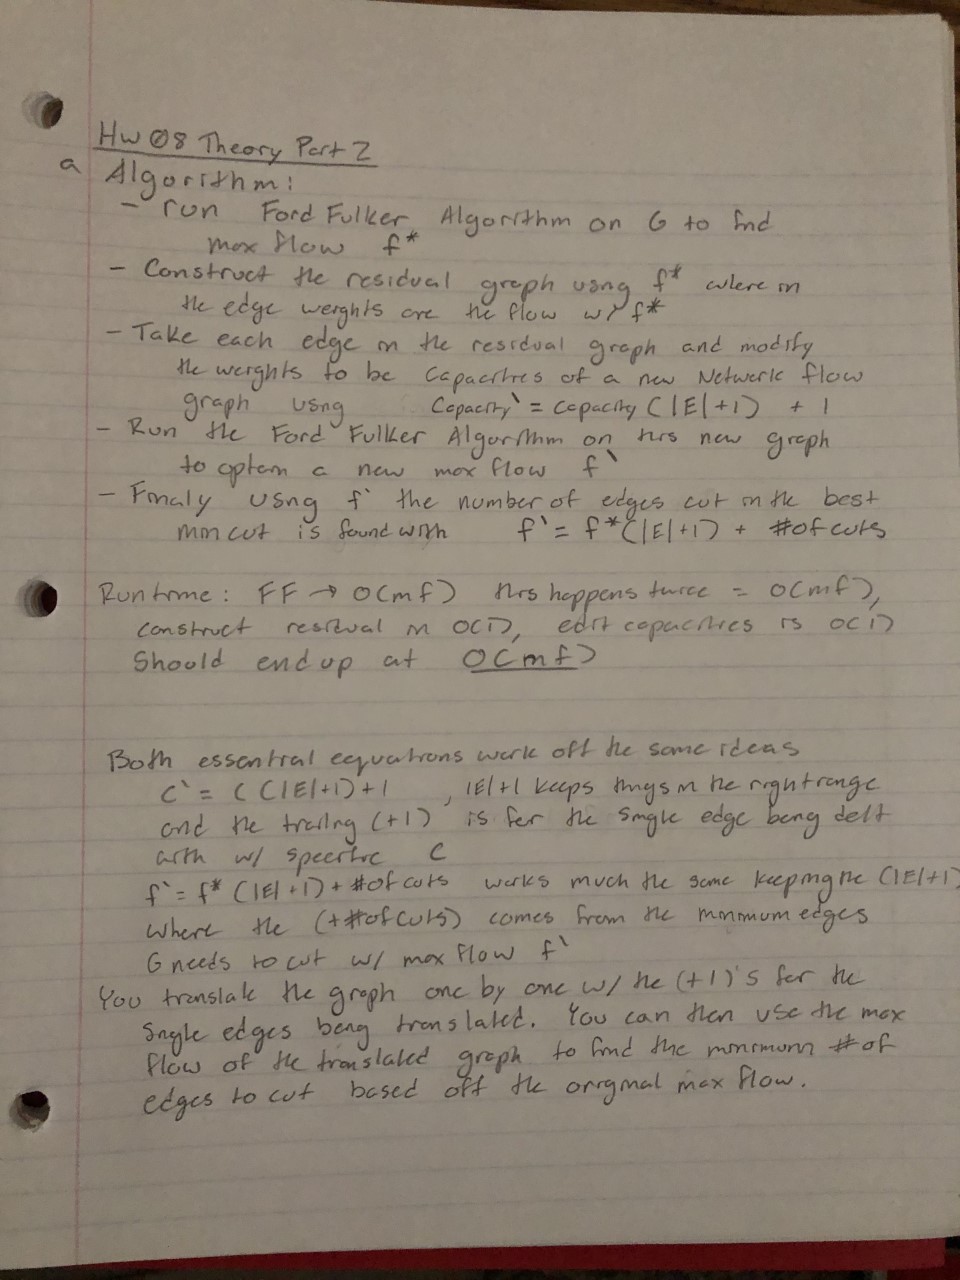 Hw 08 Theory Part 2
a Algorithm:
- run Ford Fulker Algorithm on G to find
max flow f*
- Construct the residual graph using f* where in
the edge weights are the flow w/ f*
- Take each edge in the residual graph and modify
the weights to be capacities of a new Network flow
graph using Capacity` = capacity (|E|+1) + 1
- Run the Ford Fulker Algorithm on this new graph
to optain a new max flow f`
- Finaly using f` the number of edges cut in the best
min cut is found with f` = f*(|E|+1) + #of cuts
Runtime: FF → O(mf) this happens twice = O(mf),
construct residual in O(1), edit capacities is O(1)
Should end up at O(mf)
Both essential equations work off the same ideas
c` = c(|E|+1)+1 , |E|+1 keeps things in the right range
and the trailing (+1) is for the single edge being delt
with w/ specific c
f` = f* (|E|+1) + #of cuts works much the same keeping the (|E|+1)
where the (+#of cuts) comes from the minimum edges
G needs to cut w/ max flow f`
You translate the graph one by one w/ the (+1)'s for the
single edges being translated. You can then use the max
flow of the translated graph to find the minimum # of
edges to cut based off the original max flow.